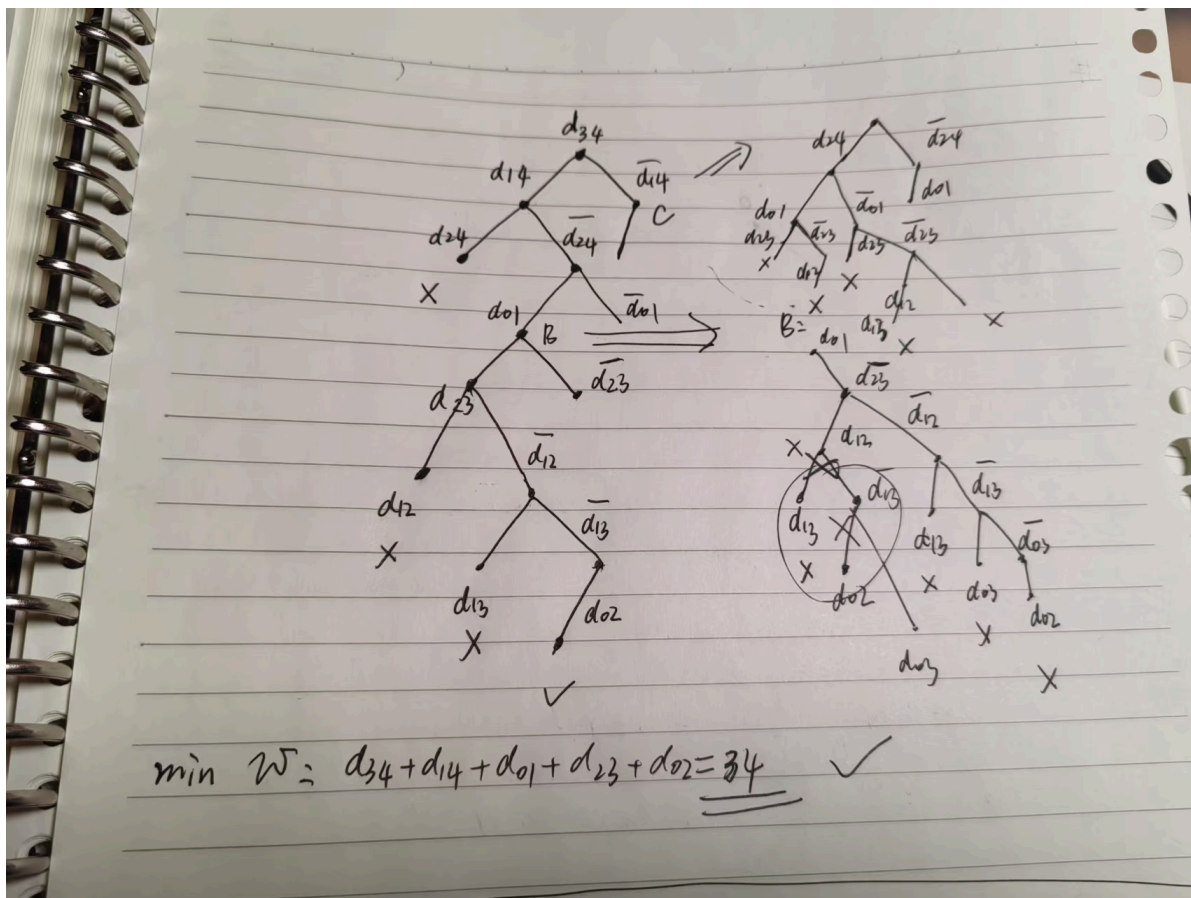 d34
d14 d̅14
C
d24 d̅24
X
d01 B d̅01
d23 d̅23
d̅12
d12
X
d̅13
d13
X
d02
✓
d24 d̅24
d01 d̅01 d01
d23 d̅23 d23 d̅23
X d12 X
X d12 X
d13 X
B= d01
d̅23
d̅12
d12
X
d̅13 d̅13
d13 d13 d̅03
X X
d02 d03 d02
X
d03
X
min W= d34+d14+d01+d23+d02=34 ✓